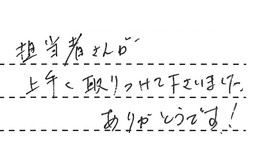 担当者さんが
上手く取りつけて下さいました。
ありがとうです!